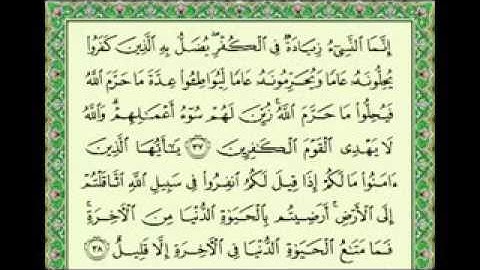 إِنَّمَا ٱلنَّسِىٓءُ زِيَادَةٌ فِى ٱلْكُفْرِ ۖ يُضَلُّ بِهِ ٱلَّذِينَ كَفَرُوا۟
يُحِلُّونَهُۥ عَامًا وَيُحَرِّمُونَهُۥ عَامًا لِّيُوَاطِـُٔوا۟ عِدَّةَ مَا حَرَّمَ ٱللَّهُ
فَيُحِلُّوا۟ مَا حَرَّمَ ٱللَّهُ ۚ زُيِّنَ لَهُمْ سُوٓءُ أَعْمَـٰلِهِمْ ۗ وَٱللَّهُ
لَا يَهْدِى ٱلْقَوْمَ ٱلْكَـٰفِرِينَ ٣٧ يَـٰٓأَيُّهَا ٱلَّذِينَ
ءَامَنُوا۟ مَا لَكُمْ إِذَا قِيلَ لَكُمُ ٱنفِرُوا۟ فِى سَبِيلِ ٱللَّهِ ٱثَّاقَلْتُمْ
إِلَى ٱلْأَرْضِ ۚ أَرَضِيتُم بِٱلْحَيَوٰةِ ٱلدُّنْيَا مِنَ ٱلْـَٔاخِرَةِ ۚ
فَمَا مَتَـٰعُ ٱلْحَيَوٰةِ ٱلدُّنْيَا فِى ٱلْـَٔاخِرَةِ إِلَّا قَلِيلٌ ٣٨